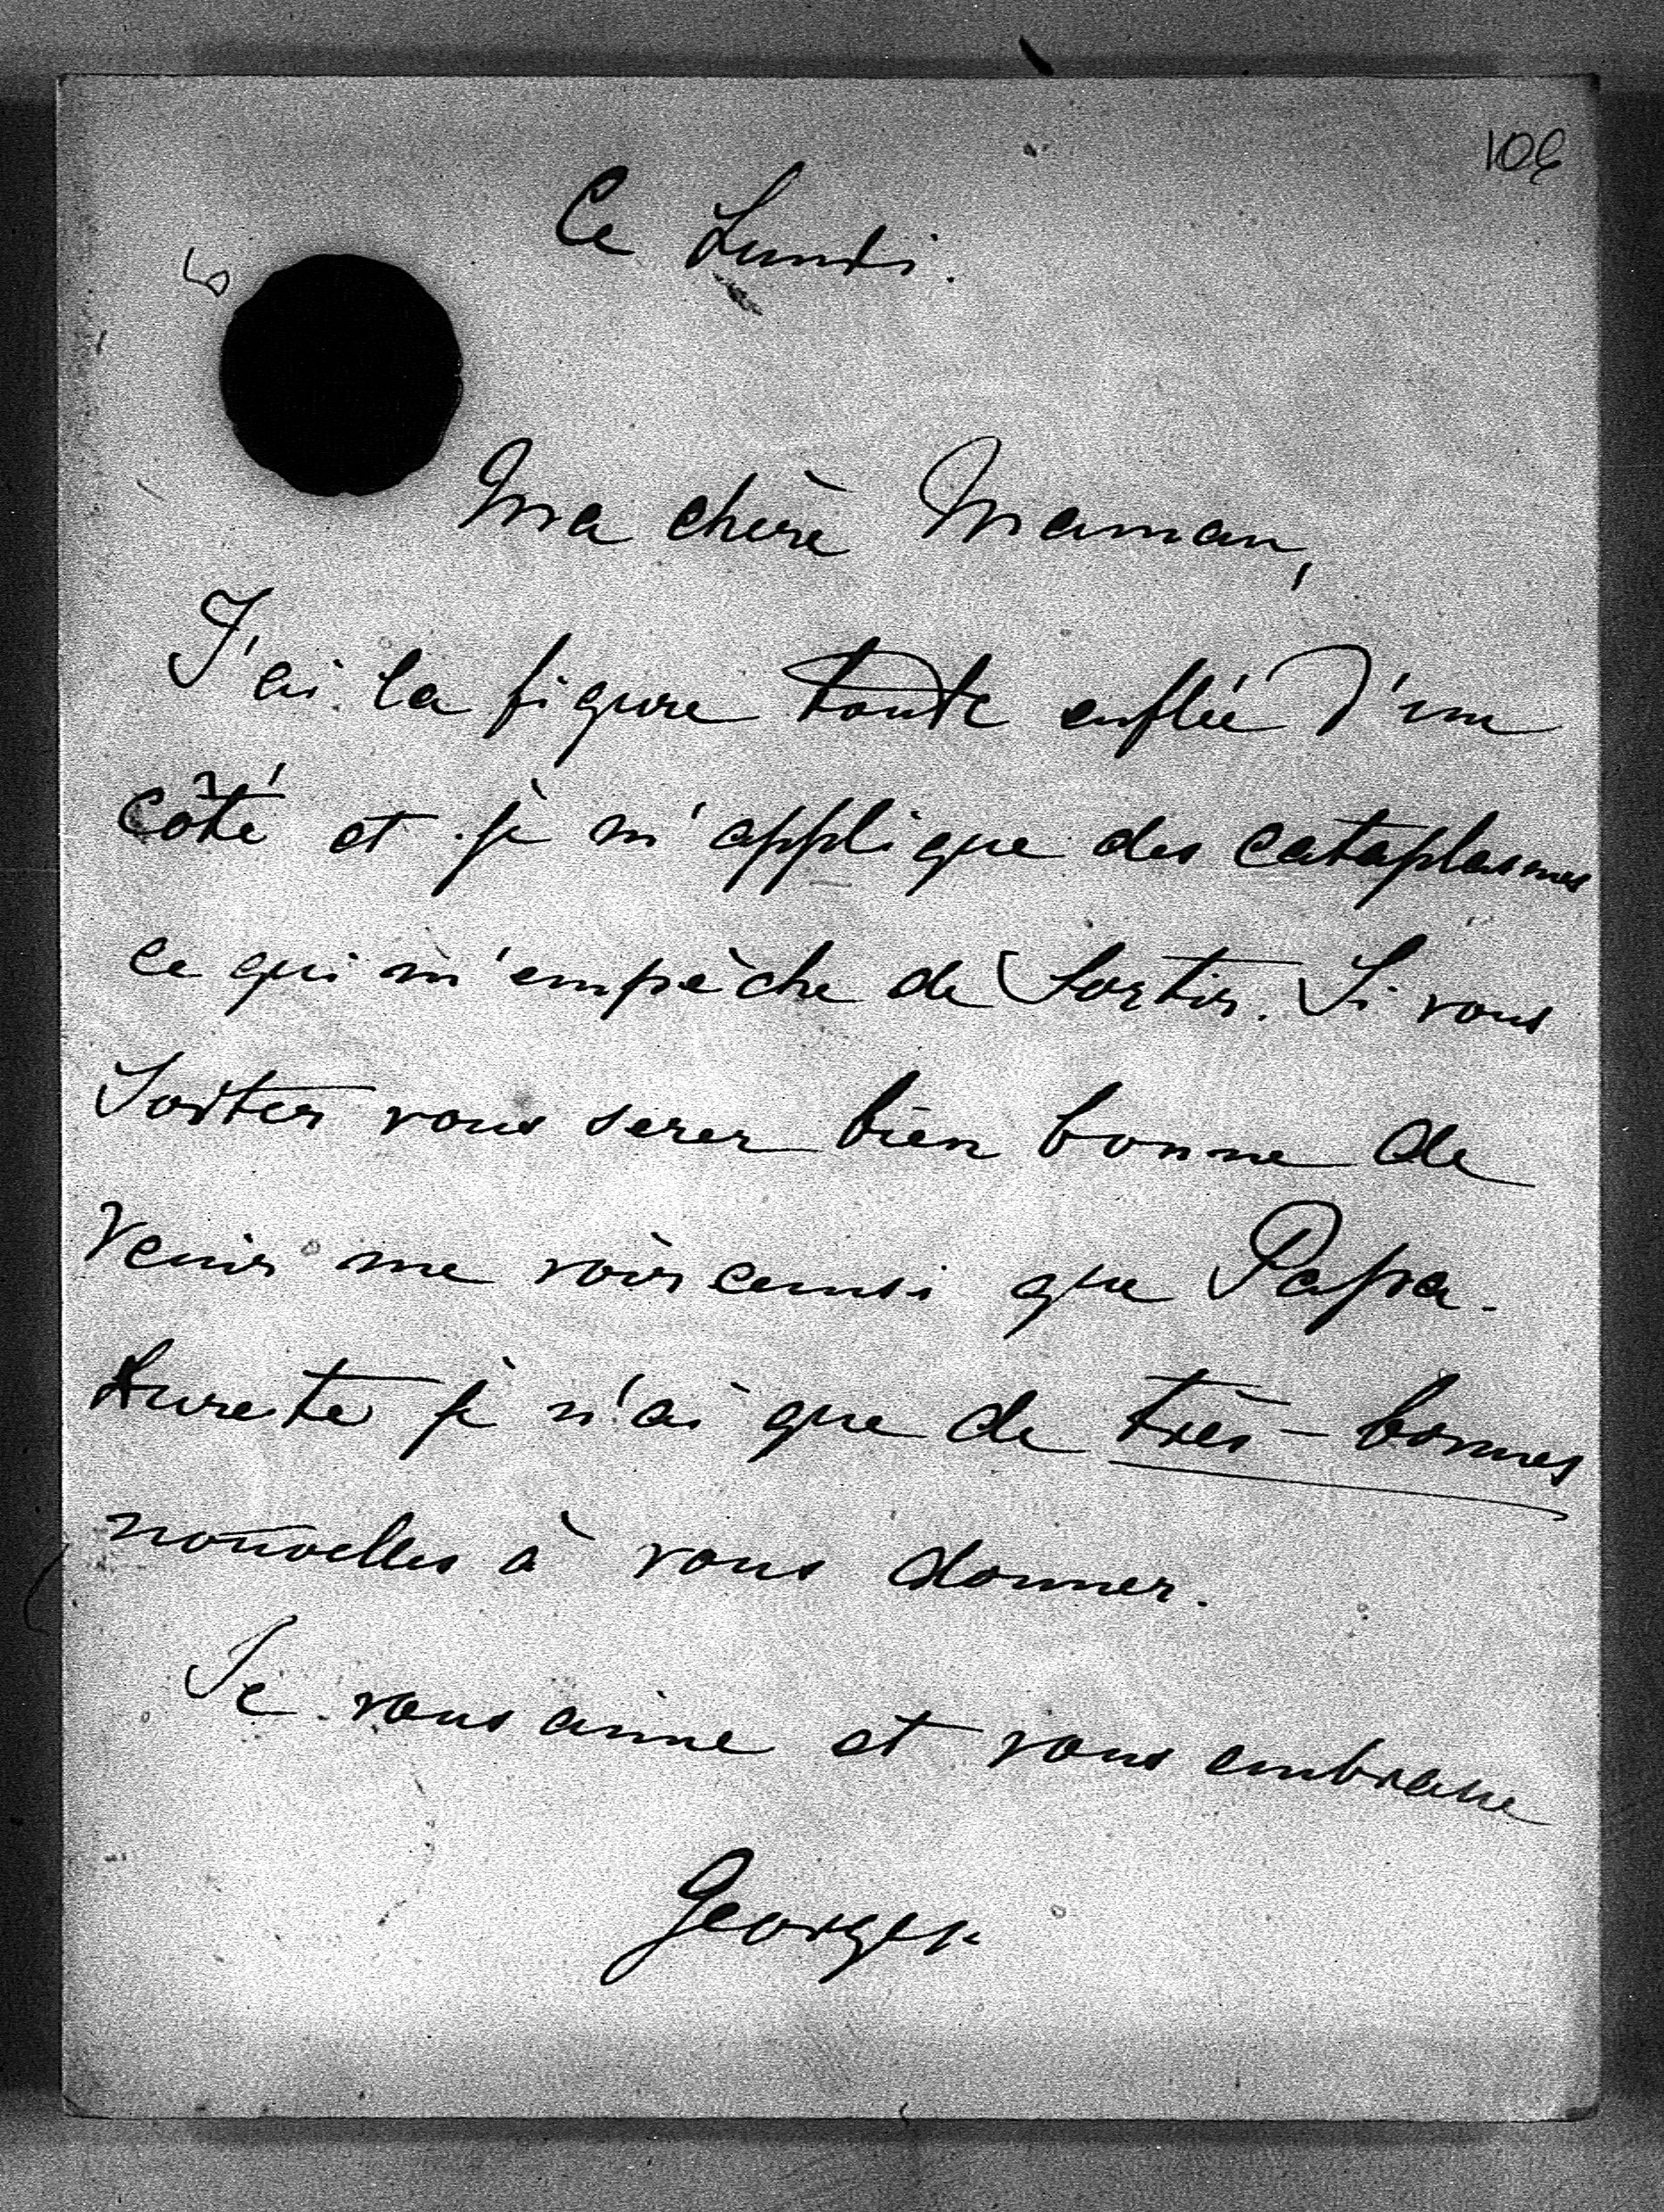 106
Ce Lundi.
6
Ma chère Maman,
J'ai la figure toute enflée d'un
côté et je m'applique des cataplasmes
ce qui m'empèche de Sortir. Si vous
Sortez vous serez bien bonne de
venir me voir ainsi que Papa.
Aureste je n'ai que de très-bonnes
nouvelles à vous donner.
Je vous aime et vous embrasse
Georges